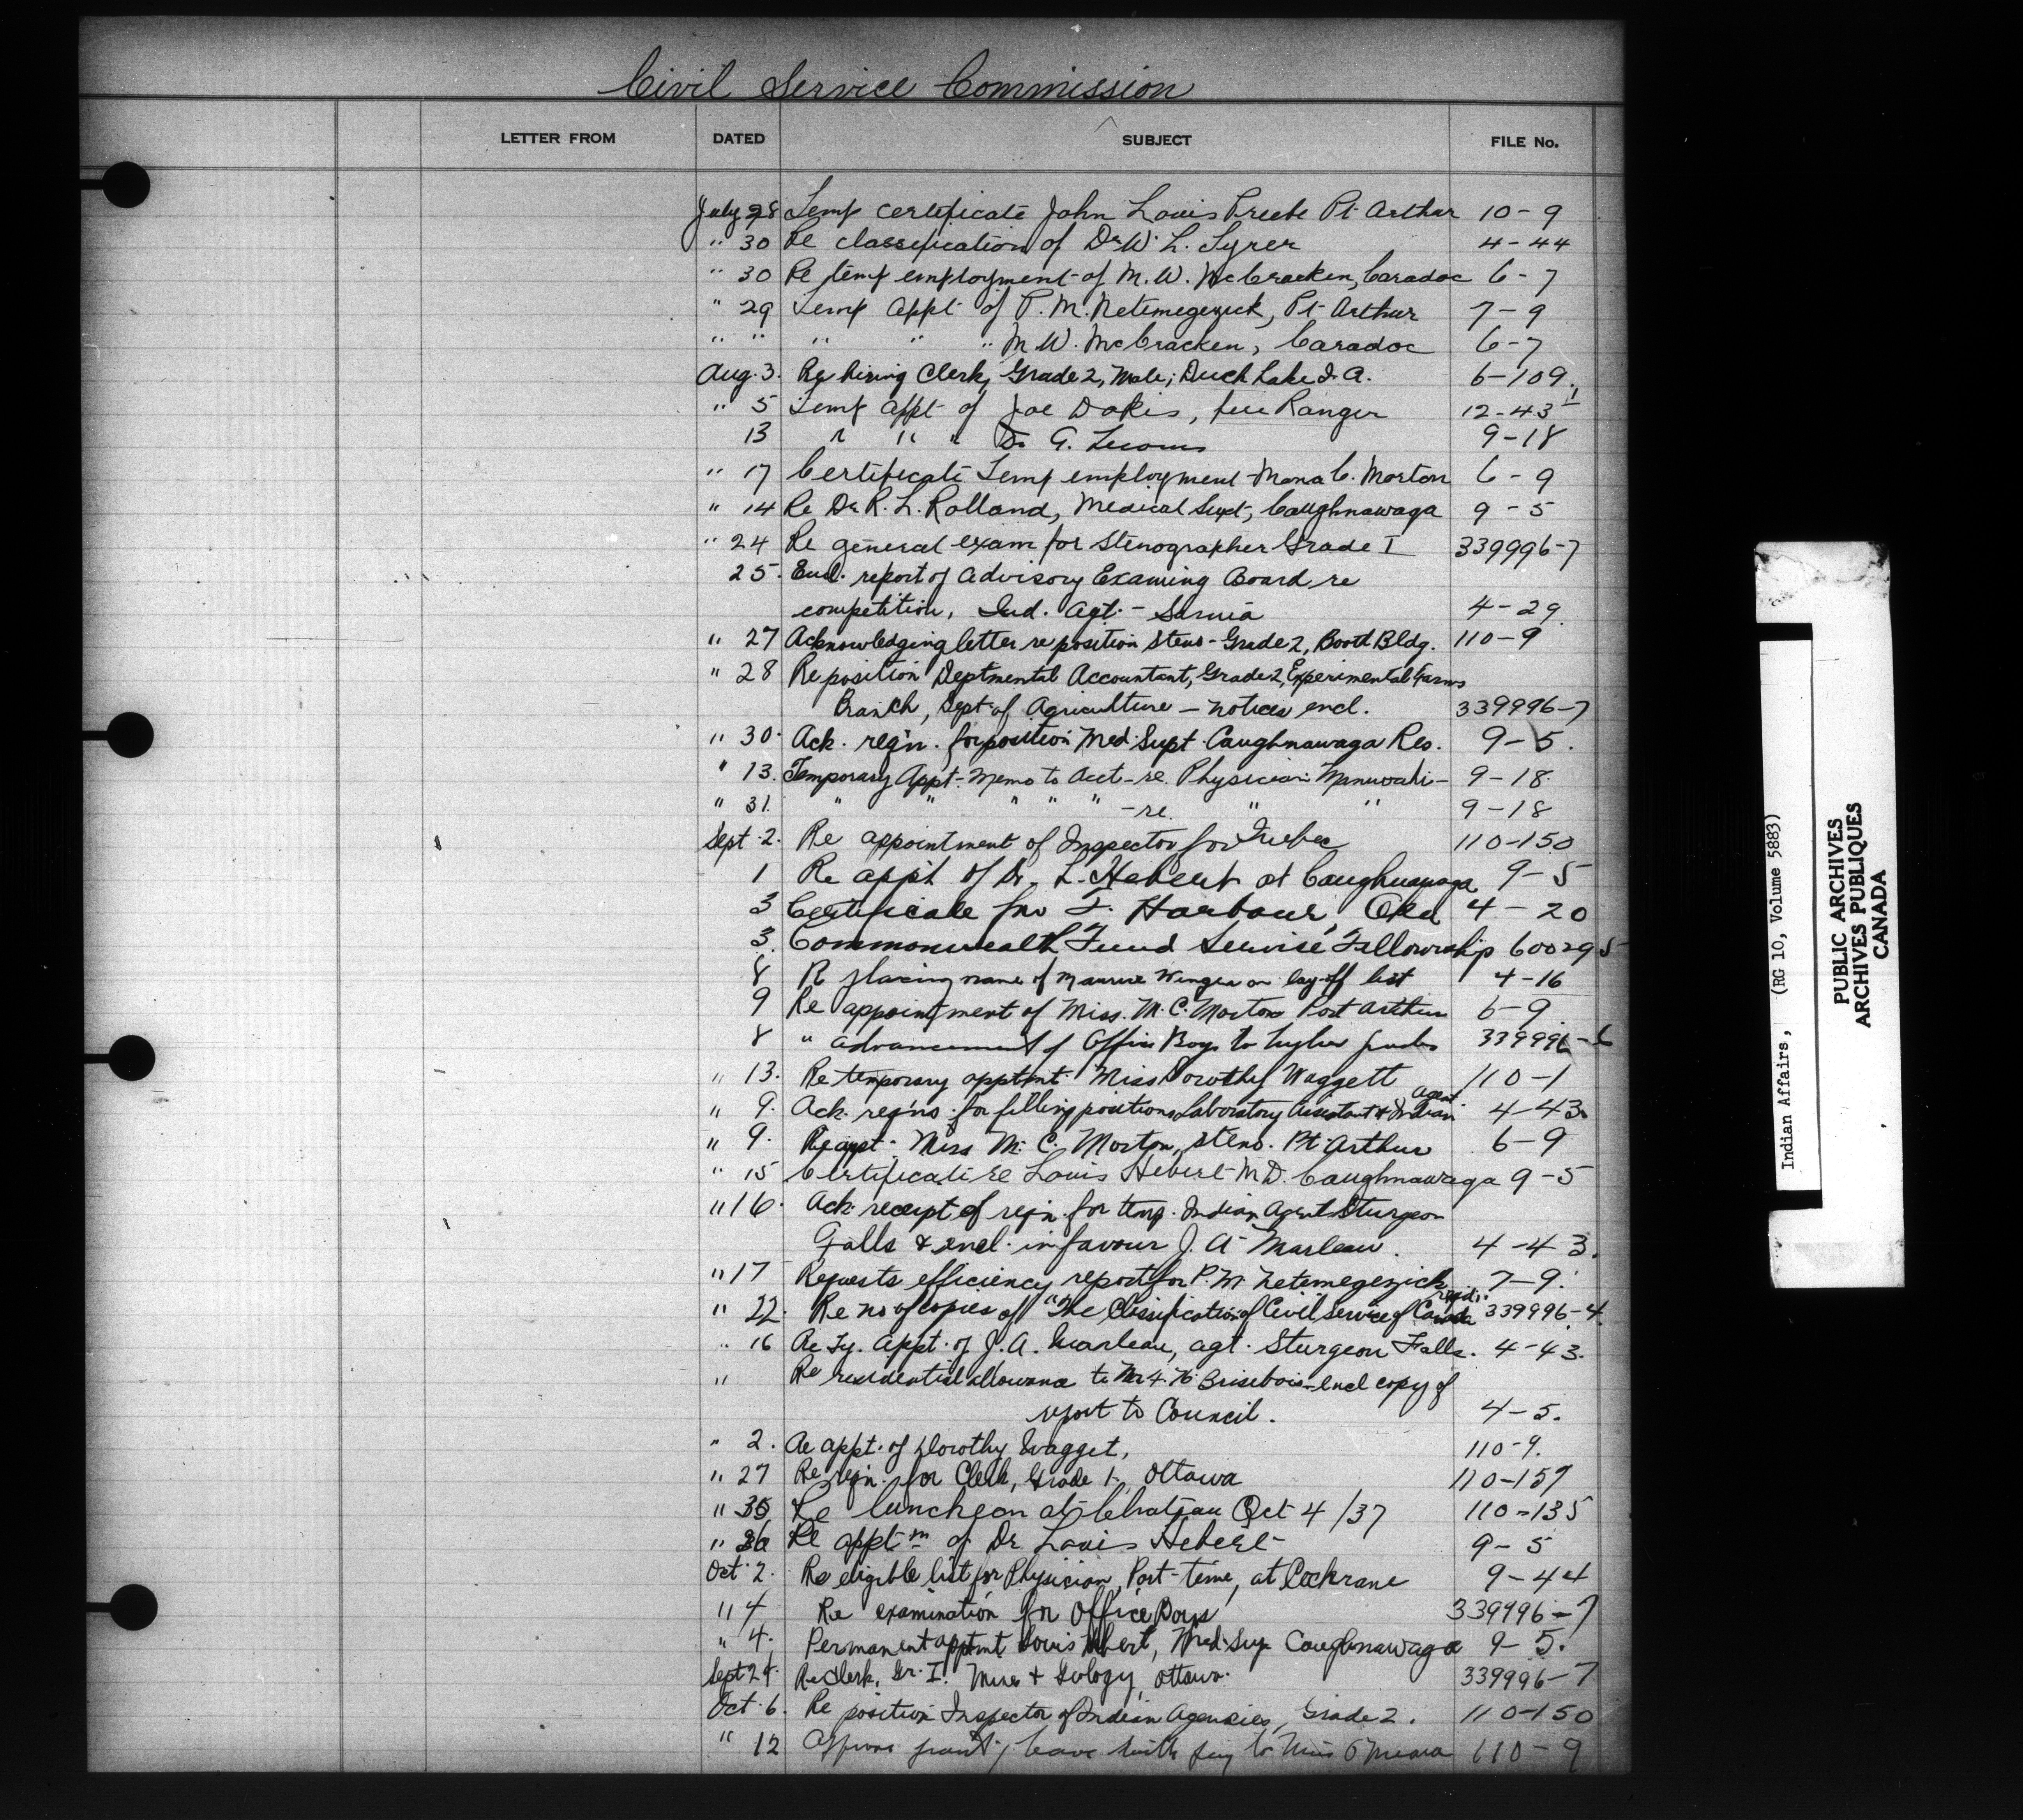 Civil Service Commission
LETTER FROM DATED SUBJECT FILE No.
July 28 Temp certificate John Louis Pt. Arthur 10-9
" 30 Re classification of Dr W. L. Tyrer 4-44
" 30 Re temp employment of M. W. McCracken, Caradoc 6-7
" 29 Temp appt of P. M. Netemegezick, Pt. Arthur 7-9
" " " " " M W. McCracken, Caradoc 6-7
Aug. 3. Re hiring Clerk, Grade 2, Male, Duck Lake I. A. 6-109.
" 5 Temp appt of Joe Dokis, fire Ranger 12-43
13 " " " Dr G. 9-18
" 17 Certificate Temp employment Mona C. Morton 6-9
" 14 Re Dr R. L. Rolland, Medical Supt, Caughnawaga 9-5
" 24 Re general exam for Stenographer Grade I 339996-7
25. Encl. report of Advisory Examing Board re
competition, Ind. Agt. - Sarnia 4-29
" 27 Acknowledging letter re position steno - Grade 2, Booth Bldg. 110-9
" 28 Re position Deptmental Accountant, Grade 2, Experimental Farms
Branch, Dept of Agriculture - notices encl. 339996-7
" 30. Ack. req'n. for position Med. Supt. Caughnawaga Res. 9-5.
" 13. Temporary Appt. - Memo to Acct - re Physician Maniwaki - 9-18
" 31. " " " " " - re. " " 9-18
Sept. 2. Re appointment of Inspector for Quebec 110-150
1 Re app't of Dr. L. Hebert at Caughnawaga 9-5
3 Certificate for F. Harbour, Oka 4-20
3. Commonwealth Fund Service Fellowship 600295
8 Re placing name of Maurice on lay-off list 4-16
9 Re appointment of Miss. M. C. Morton Port Arthur 6-9
8 " advancement of Office Boys to higher grades 339996-6
" 13. Re temporary apptmt. Miss Dorothy Waggett 110-1
Agent
" 9. Ack. req'ns. for filling positions Laboratory Assistant & Indian 4-43
" 9. Re appt. Miss M. C. Morton, Steno. Pt. Arthur 6-9
" 15 Certificate re Louis Hebert M.D. Caughnawaga 9-5
" 16. Ack. receipt of reqn. for temp. Indian Agent Sturgeon
Falls & encl. in favour J. A. Marleau. 4-43.
" 17 Requests efficiency report for P. M. Netemegezick 7-9.
reqd.
" 22. Re no of copies of "The Classification of Civil Service of Canada 339996-4.
" 16 Re Ty. Appt. of J. A. Marleau, agt. Sturgeon Falls. 4-43.
" Re residential allowance to Mr Brisebois - encl copy of
report to Council. 4-5.
" 2. Re appt. of Dorothy Wagget, 110-9.
" 27 Re reqn. for Clerk, Grade 1, Ottawa 110-157
" 30 Re luncheon at Chateau Oct 4/37 110-135
" Re apptm of Dr Louis Hebert 9-5
Oct. 2. Re eligible list for Physician, Part-time, at Cochrane 9-44
" 4 Re examination for Office Boys 339996-7
" 4. Permanent apptmt Louis Hbert, Med. Sup. Caughnawaga 9-5.
Sept 29. Re Clerk, Gr. I. Mines & Geology, Ottawa. 339996-7
Oct. 6. Re position Inspector of Indian Agencies, Grade 2. 110-150
" 12 leave with pay to Miss O'Meara 110-9
Indian Affairs, (RG 10, Volume 5883)
PUBLIC ARCHIVES
ARCHIVES PUBLIQUES
CANADA